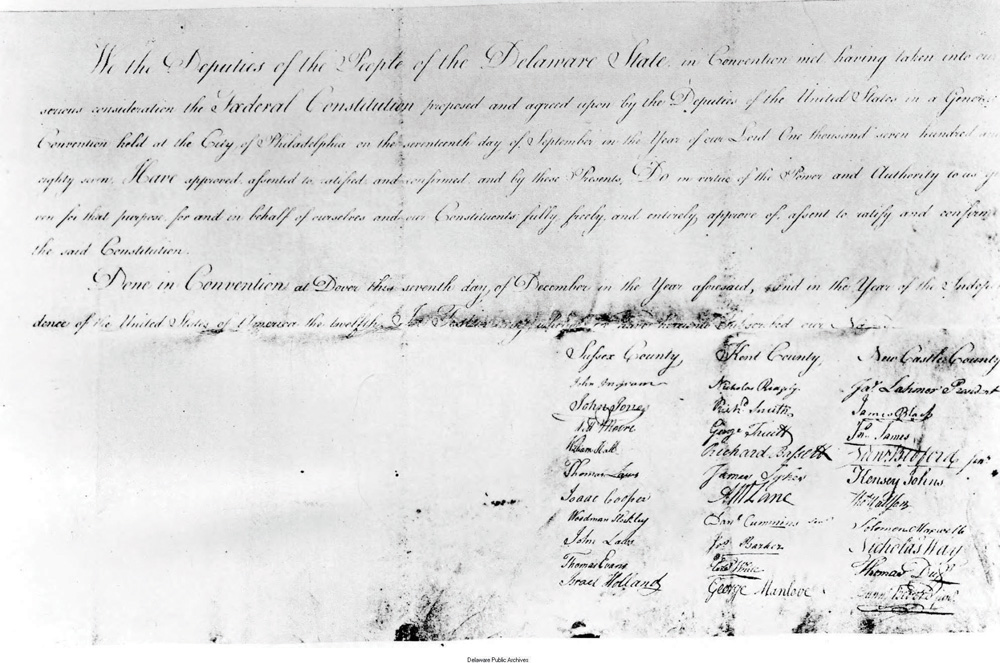 We the Deputies of the People of the Delaware State, in Convention met having taken into our
serious consideration the Fœderal Constitution proposed and agreed upon by the Deputies of the United States in a General
Convention held at the City of Philadelphia on the seventeenth day of September in the Year of our Lord One thousand seven hundred and
eighty seven, Have approved, assented to, ratified, and confirmed, and by these Presents, Do, in virtue of the Power and Authority to us gi
ven for that purpose, for and in behalf of ourselves and our Constituents, fully, freely, and entirely approve of, assent to, ratify, and confirm
the said Constitution.
Done in Convention at Dover this seventh day of December in the Year aforesaid, and in the Year of the Indepen
dence of the United States of America the twelfth. In Testimony whereof we have hereunto subscribed our Names
Sussex County
John Ingram
John Jones
Wm Moore
William Hall
Thomas Laws
Isaac Cooper
Woodman Stockley
John Laws
Thomas Evans
Israel Holland
Kent County
Nicholas Ridgely
Richd Smith
George Truitt
Richard Bassett
James Sykes
A McLane
Danl Cummins senr
Jos Barker
Edwd White
George Manlove
New Castle County
Jas Latimer President
James Black
Jno James
Gunning Bedford Senr
Kensey Johns
Thos Watson
Solomon Maxwell
Nicholas Way
Thomas Duff
Gunng Bedford Junr
Delaware Public Archives